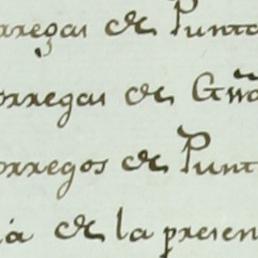 rregas de Punta
orregas de Gũa
orregos de Punt
ia de la presen